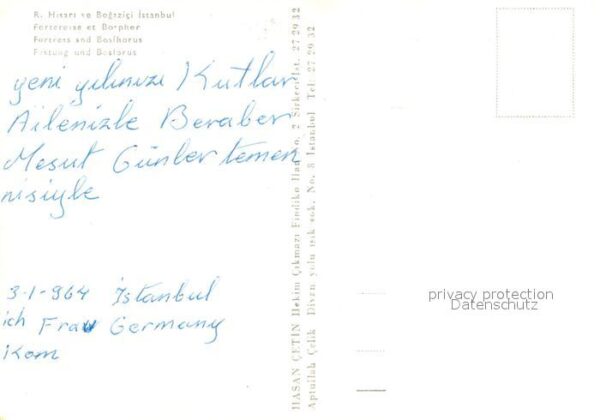 R. Hisarı ve Boğaziçi İstanbul
Forteresse et Borpher
Fortress and Bosfhorus
Festung und Bosforus
yeni yılınızı Kutlar
Ailenizle Beraber
Mesut Günler temen
nisiyle
3-1-964 İstanbul
ich Frau Germany
Kom
HASAN ÇETİN Bekim Çıkmazı Fındıklı Han No. 2 Sirkeci-İst. 27 29 32
Aptullah Çelik Divan yolu ışık sok. No. 8 İstanbul Tel: 27 29 32
privacy protection
Datenschutz